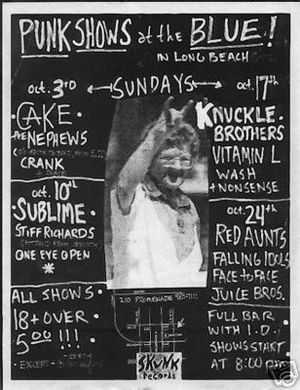 PUNK SHOWS at the BLUE!
IN LONG BEACH
SUNDAYS
OCT. 3RD
CAKE
THE NEPHEWS
CRANK
OCT. 10th
SUBLIME
STIFF RICHARDS
ONE EYE OPEN
*
ALL SHOWS
18 + OVER
5.00 !!!
EXCEPT
OCT. 17th
KNUCKLE
BROTHERS
VITAMIN L
WASH
+ NONSENSE
OCT. 24th
RED AUNTS
FALLING IDOLS
FACE to FACE
JUICE BROS.
FULL BAR
WITH I.D.
SHOWS START
AT 8:00 PM
210 PROMENADE
SKUNK
records